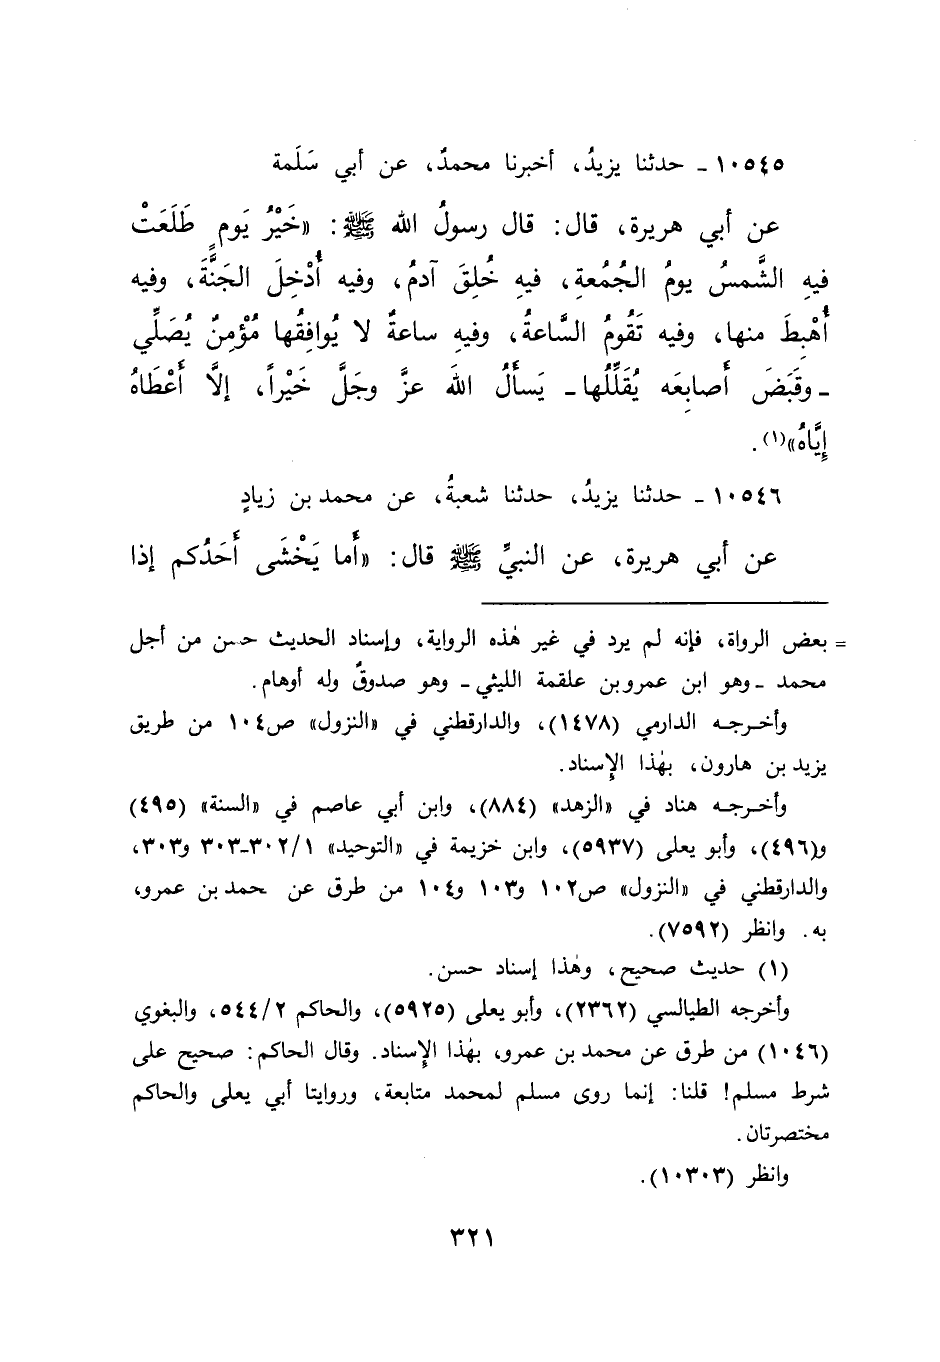 ١٠٥٤٥ - حدثنا يزيدُ، أخبرنا محمدٌ، عن أبي سَلَمة
عن أبي هريرة، قال: قال رسولُ الله ﷺ: «خَيْرُ يَومٍ طَلَعَتْ
فيهِ الشَّمسُ يومُ الجُمُعةِ، فيهِ خُلِقَ آدمُ، وفيه أُدْخِلَ الجَنَّةَ، وفيه
أُهْبِطَ منها، وفيه تَقُومُ السَّاعةُ، وفيهِ ساعةٌ لا يُوافِقُها مُؤْمِنٌ يُصَلِّي
- وقَبَضَ أَصابِعَه يُقَلِّلُها - يَسأَلُ اللهَ عزَّ وجَلَّ خَيْراً، إلَّا أَعْطَاهُ
إيَّاهُ»(١).
١٠٥٤٦ - حدثنا يزيدُ، حدثنا شعبةُ، عن محمد بن زيادٍ
عن أبي هريرة، عن النبيِّ ﷺ قال: «أَما يَخْشَى أَحَدُكم إذا
= بعض الرواة، فإنه لم يرد في غير هٰذه الرواية، وإسناد الحديث حسن من أجل
محمد - وهو ابن عمرو بن علقمة الليثي - وهو صدوقٌ وله أوهام.
وأخرجه الدارمي (١٤٧٨)، والدارقطني في «النزول» ص١٠٤ من طريق
يزيد بن هارون، بهٰذا الإسناد.
وأخرجه هناد في «الزهد» (٨٨٤)، وابن أبي عاصم في «السنة» (٤٩٥)
و(٤٩٦)، وأبو يعلى (٥٩٣٧)، وابن خزيمة في «التوحيد» ٣٠٢/١-٣٠٣ و٣٠٣،
والدارقطني في «النزول» ص١٠٢ و١٠٣ و١٠٤ من طرق عن حمد بن عمرو،
به. وانظر (٧٥٩٢).
(١) حديث صحيح، وهٰذا إسناد حسن.
وأخرجه الطيالسي (٢٣٦٢)، وأبو يعلى (٥٩٢٥)، والحاكم ٥٤٤/٢، والبغوي
(١٠٤٦) من طرق عن محمد بن عمرو، بهٰذا الإسناد. وقال الحاكم: صحيح على
شرط مسلم! قلنا: إنما روى مسلم لمحمد متابعة، وروايتا أبي يعلى والحاكم
مختصرتان.
وانظر (١٠٣٠٣).
٣٢١